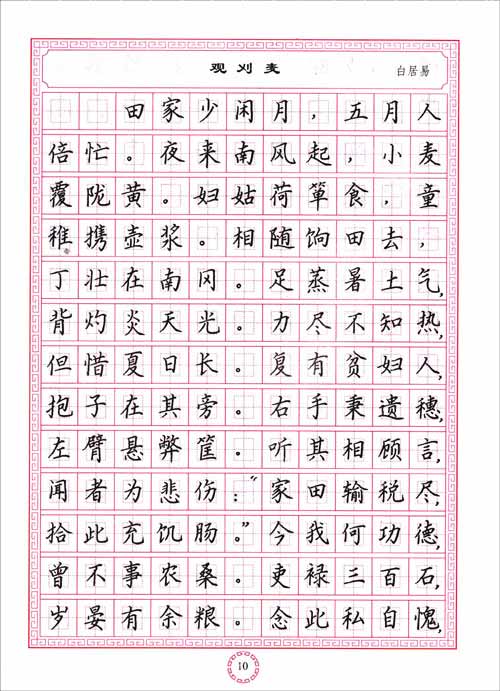 观刈麦
白居易
田家少闲月，五月人
倍忙。夜来南风起，小麦
覆陇黄。妇姑荷箪食，童
稚携壶浆。相随饷田去，
丁壮在南冈。足蒸暑土气，
背灼炎天光。力尽不知热，
但惜夏日长。复有贫妇人，
抱子在其旁。右手秉遗穗，
左臂悬弊筐。听其相顾言，
闻者为悲伤：“家田输税尽，
拾此充饥肠。”今我何功德，
曾不事农桑。吏禄三百石，
岁晏有余粮。念此私自愧，
10